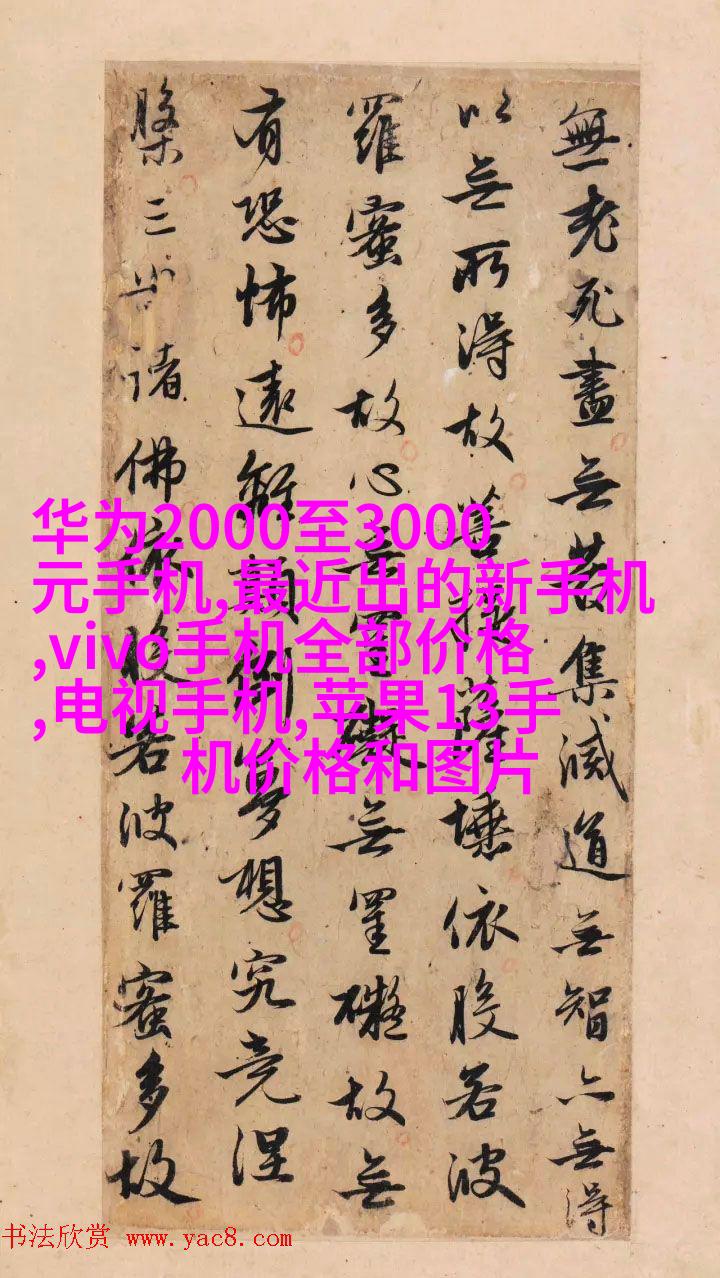 無老死盡无苦集滅道无智亦无得
以无所得故菩提薩埵依般若波
羅蜜多故心无罣礙无罣礙故无
有恐怖遠離顛倒夢想究竟涅
槃三世諸佛依般若波羅蜜多故
华为2000至3000
元手机,最近出的新手机
,vivo手机全部价格
,电视手机,苹果13手
机价格和图片
书法欣赏 www.yac8.com